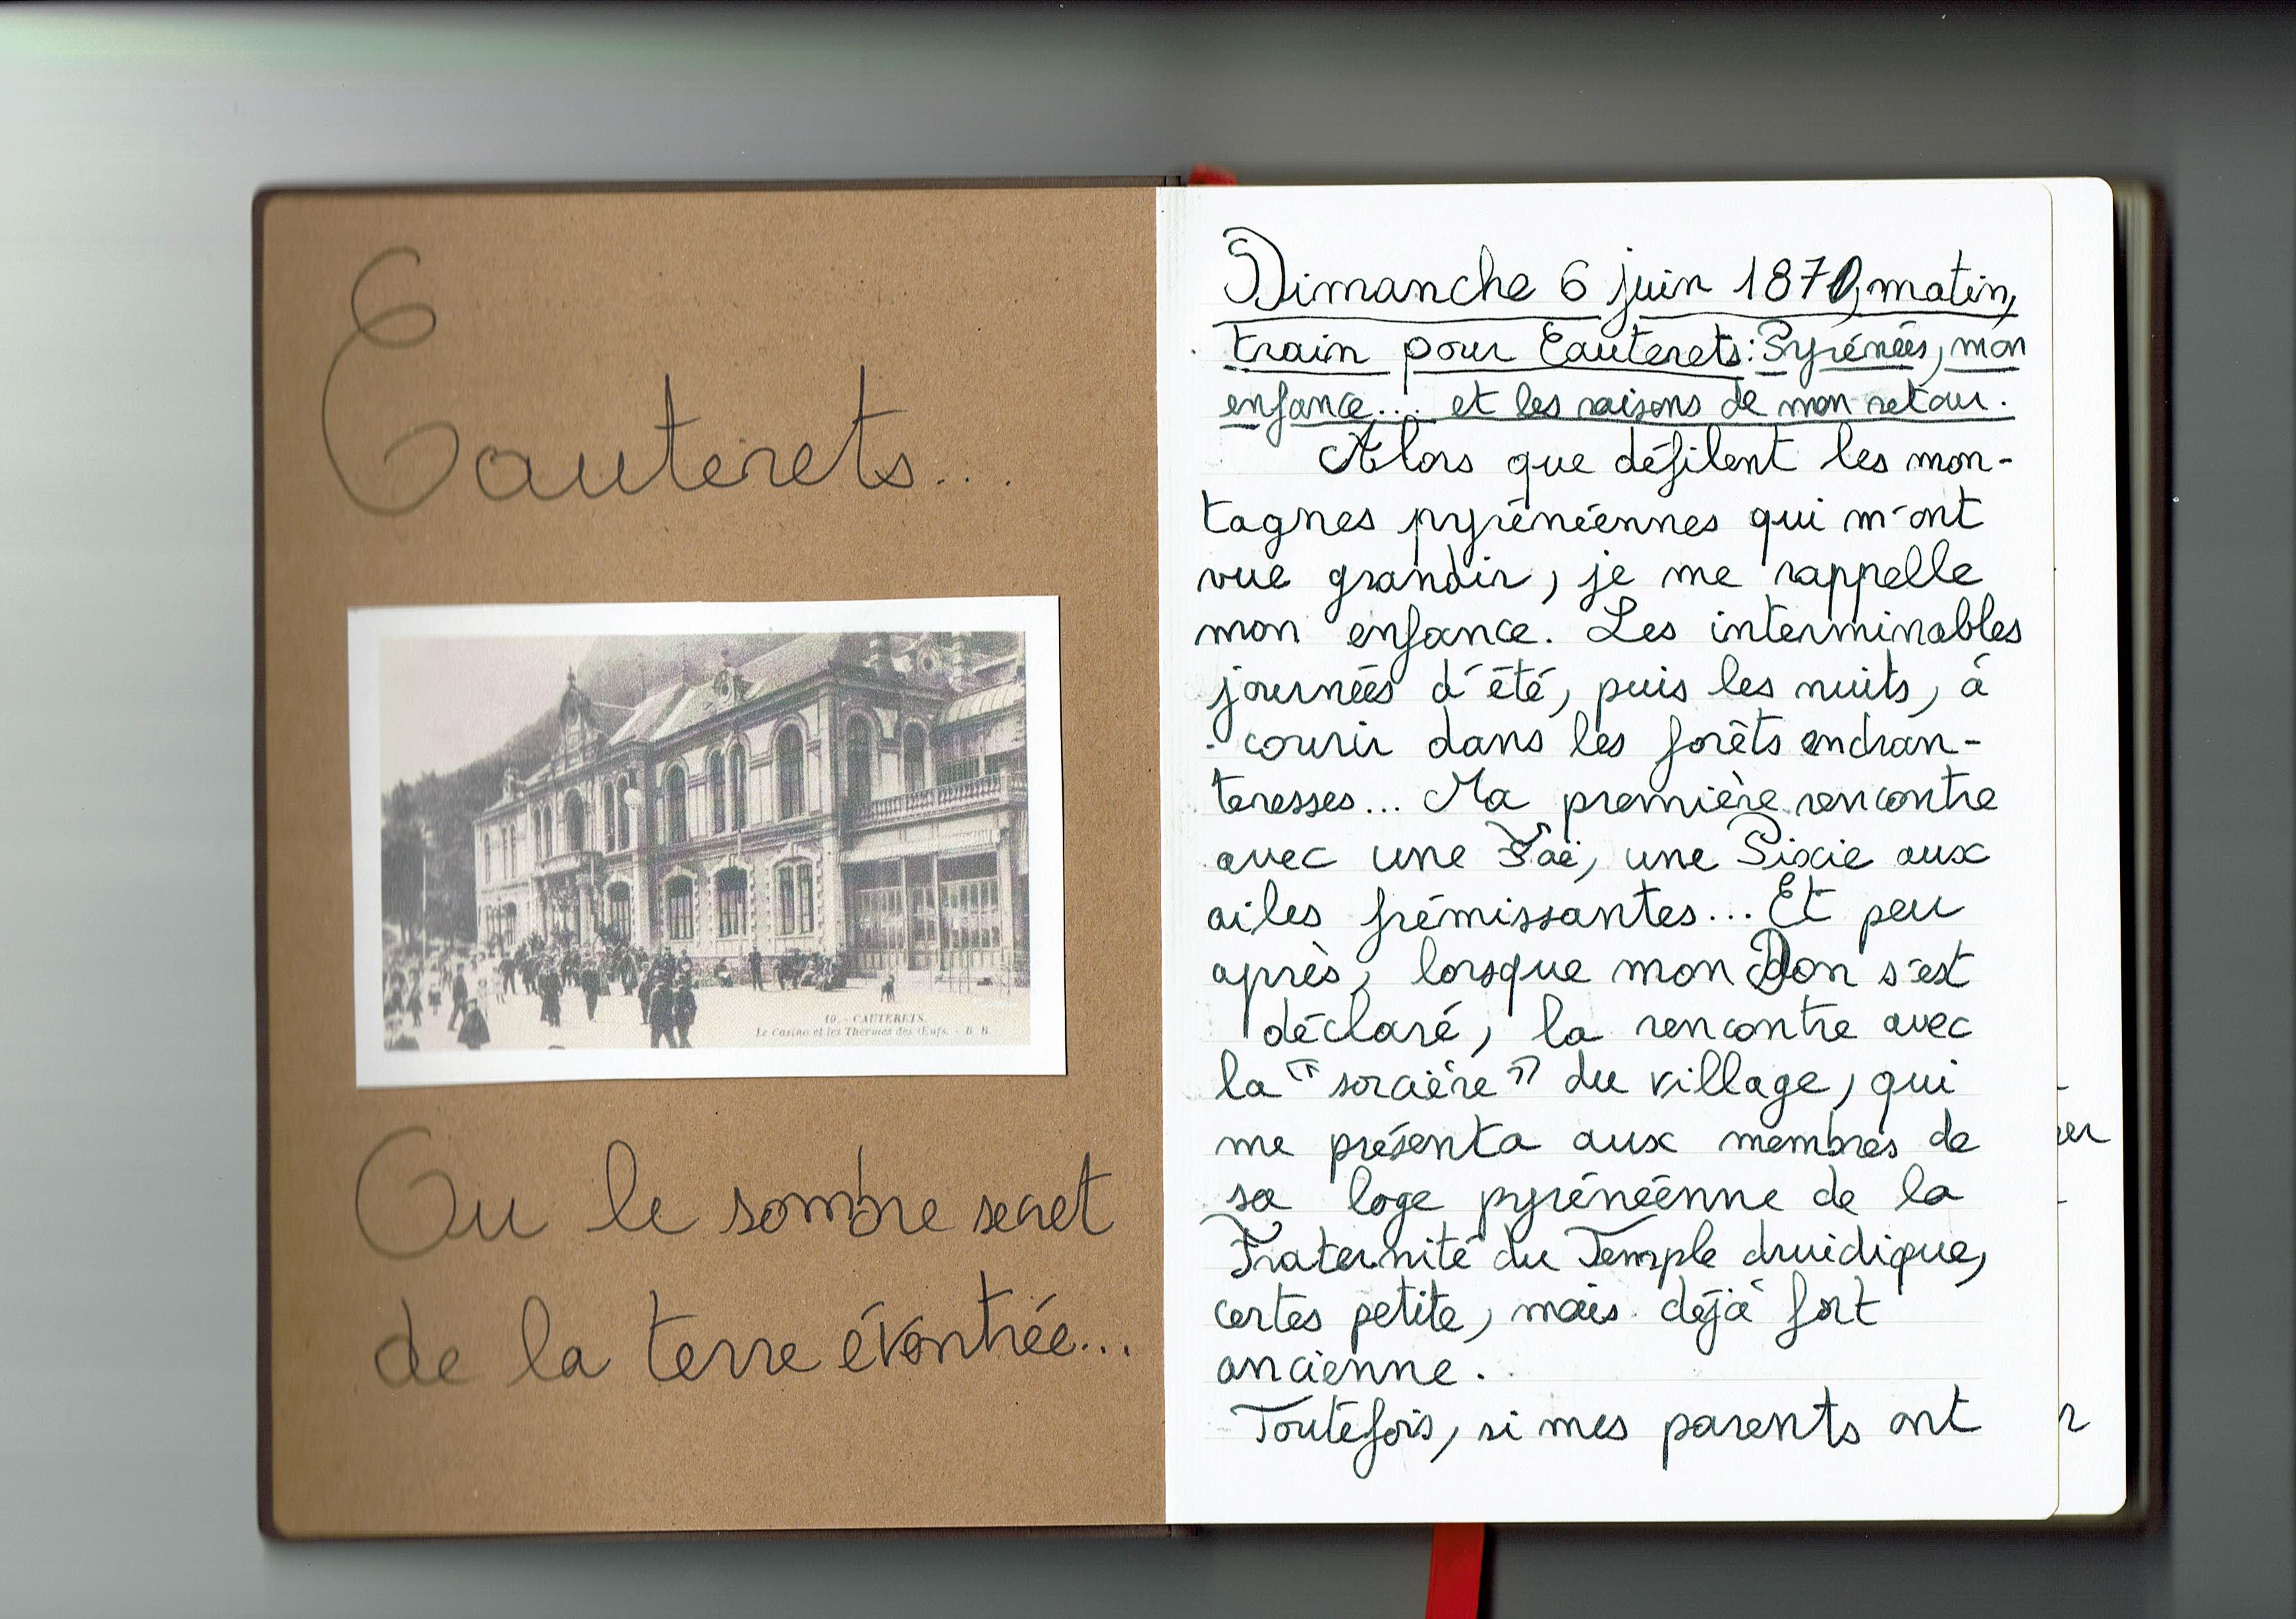 Cauterets...
10. - CAUTERETS.
Le Casino et les Thermes des Œufs. - B. R.
Ou le sombre secret
de la terre éventrée...
Dimanche 6 juin 1870, matin,
train pour Cauterets: Pyrénées, mon
enfance... et les raisons de mon retour.
Alors que défilent les mon-
tagnes pyrénéennes qui m'ont
vue grandir, je me rappelle
mon enfance. Les interminables
journées d'été, puis les nuits, à
courir dans les forêts enchan-
teresses... Ma première rencontre
avec une Faë, une Pixie aux
ailes frémissantes... Et peu
après, lorsque mon Don s'est
déclaré, la rencontre avec
la "sorcière" du village, qui
me présenta aux membres de
sa loge pyrénéenne de la
Fraternité du Temple druidique,
certes petite, mais déjà fort
ancienne.
Toutefois, si mes parents ont